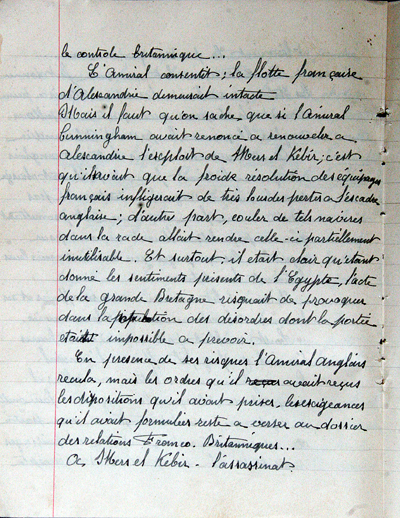 le controle britannique...
L'Amiral consentit; la flotte française
d'Alexandrie demeurait intacte
Mais il faut qu'on sache que si l'Amiral
Cunningham avait renoncé a renouveler a
Alexandrie l'exploit de Mers el Kébir; c'est
qu'il savait que la froide résolution des équipages
français infligerait de très lourdes pertes a l'escadre
anglaise; d'autre part, couler de tels navires
dans la rade allait rendre celle-ci partiellement
inutilisable. Et surtout il était clair qu'étant
donné les sentiments présents de l'Egypte, l'acte
de la grande Bretagne risquait de provoquer
dans la population des désordres dont la portée
etait impossible a prevoir.
En presence de ses risques l'Amiral anglais
recula, mais les ordres qu'il avait reçus
les dispositions qu'il avait prises, les exigeances
qu'il avait formulées reste a verser au dossier
des relations Franco. Britanniques...
A Mers el Kébir - l'assassinat.